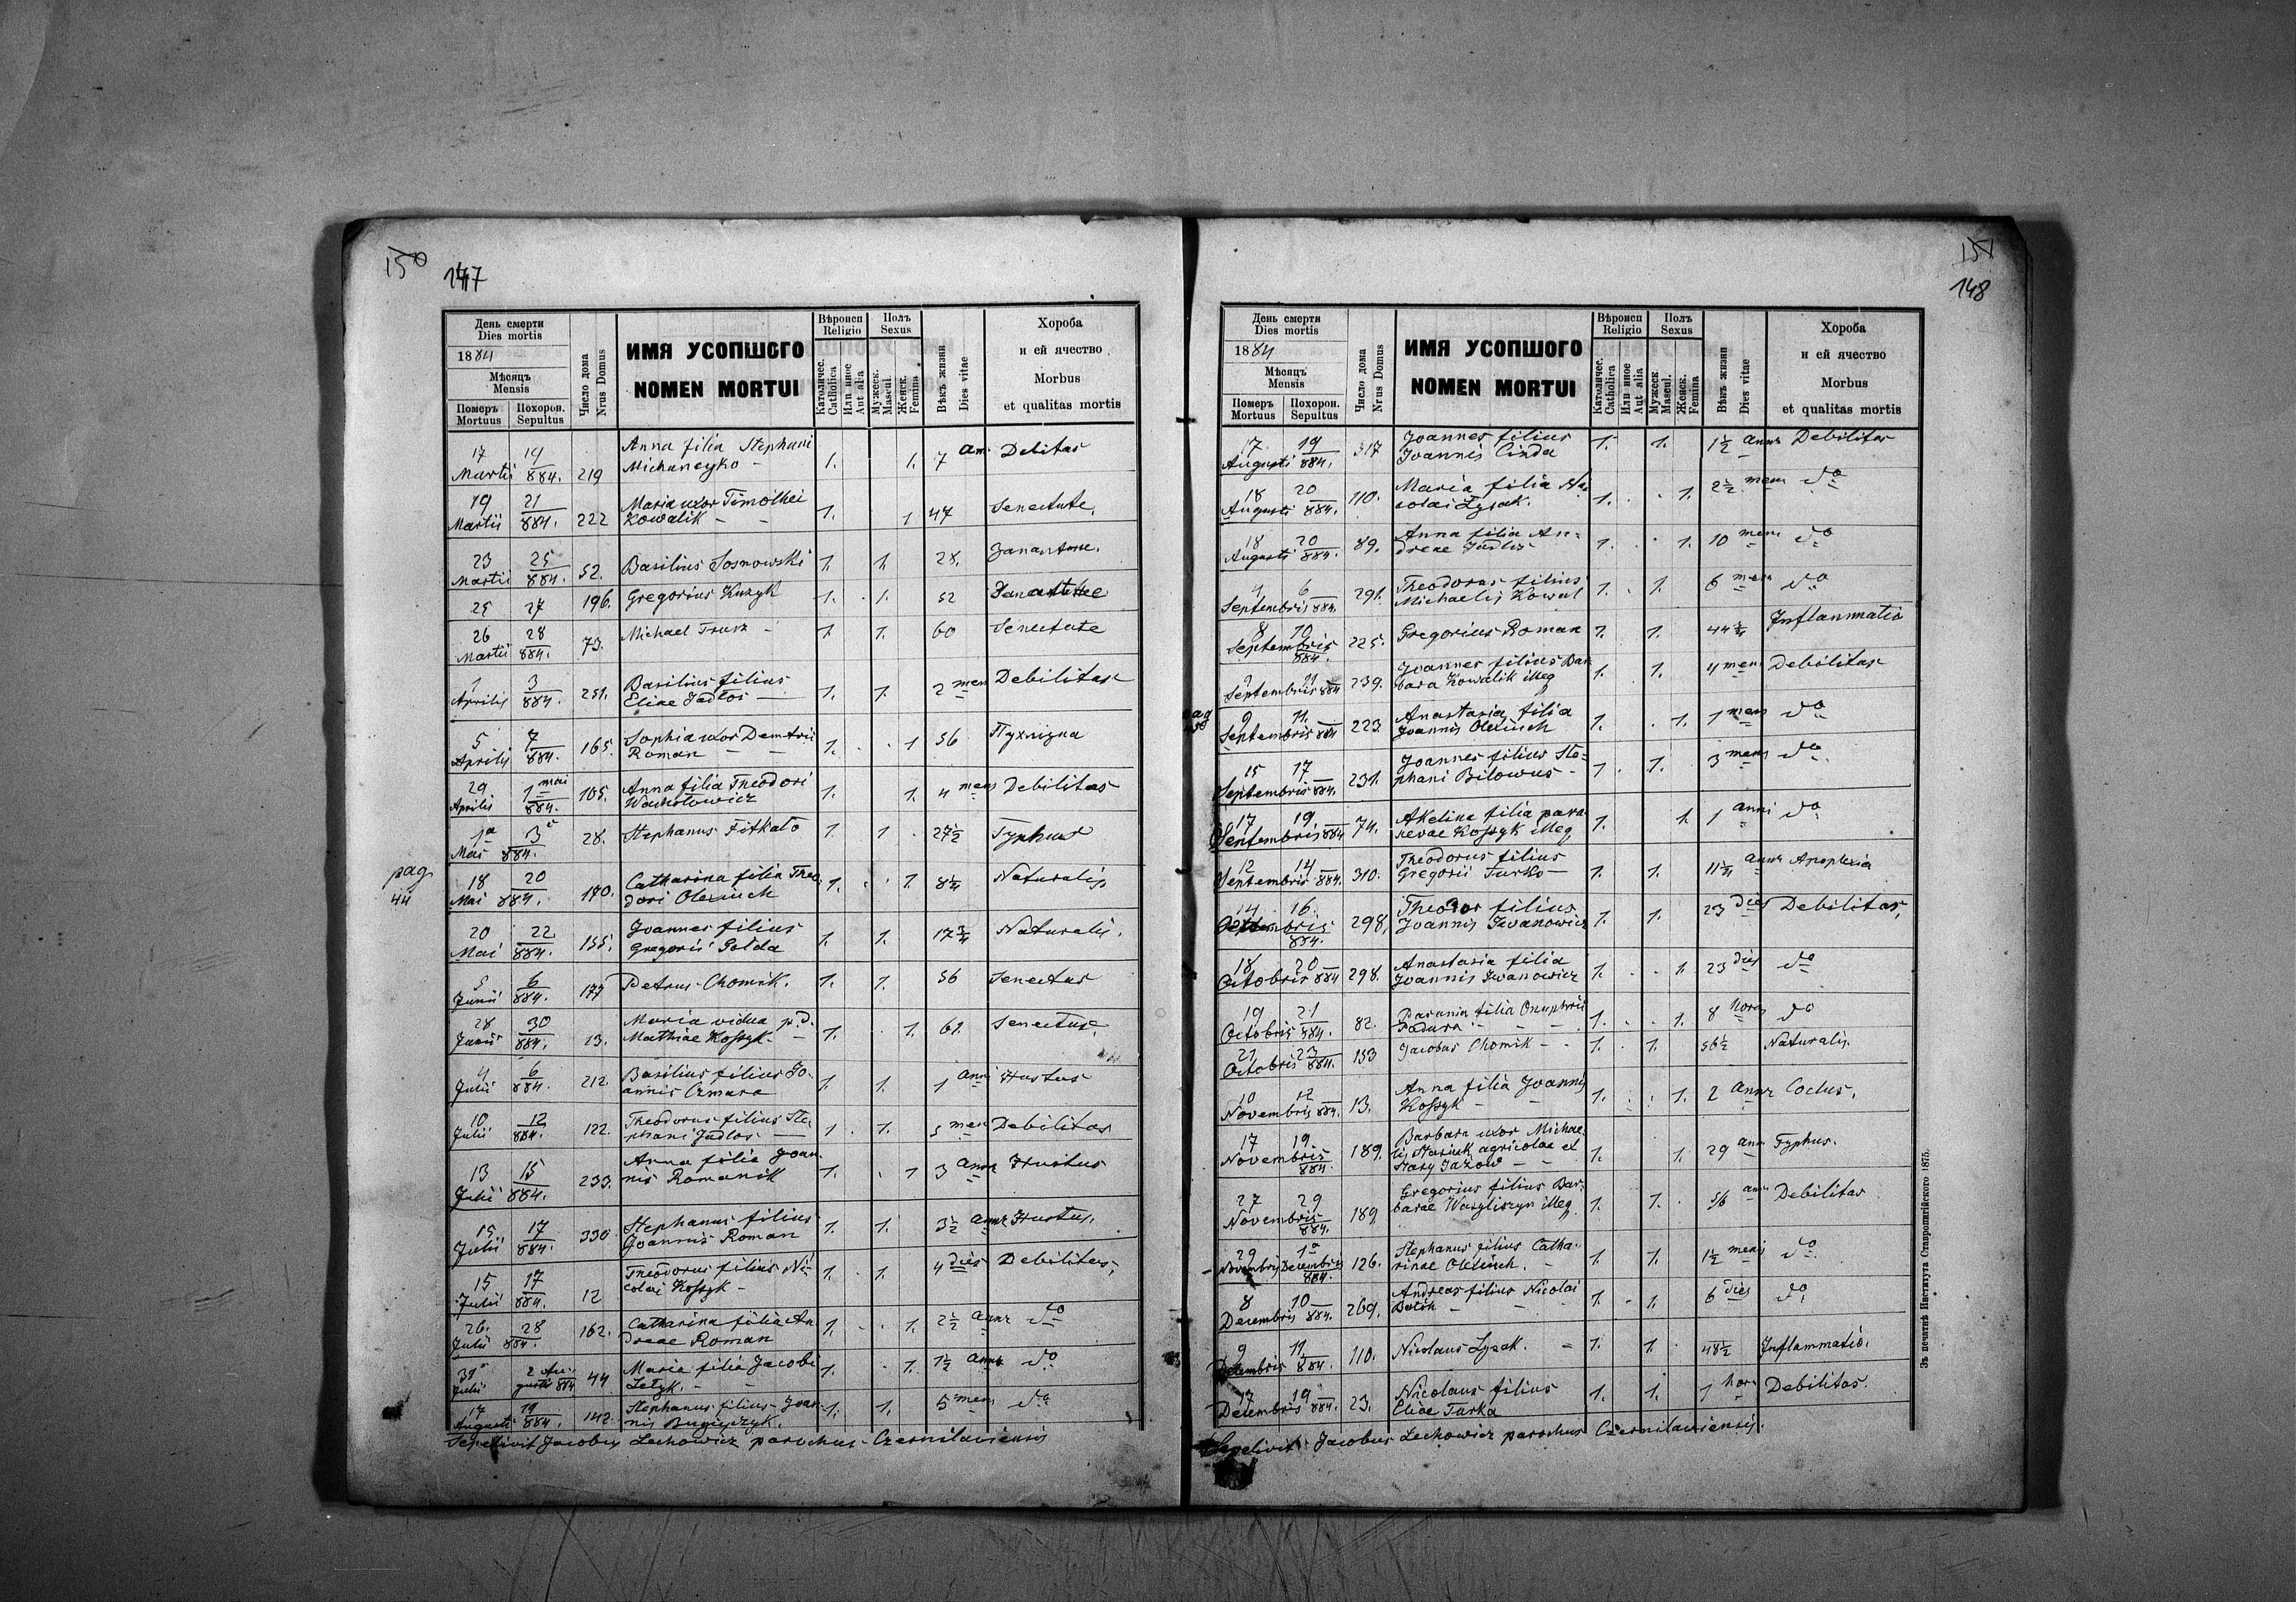 150
147
День смерти
Dies mortis
1884
Мѣсяцъ
Mensis
Померъ Mortuus
Похорон. Sepultus
Число дома
Nrus Domus
ИМЯ УСОПШОГО
NOMEN MORTUI
Вѣроисп
Religio
Католичес.
Catholica
Или иное
Aut alia
Полъ
Sexus
Мужеск.
Mascul.
Женск.
Femina
Вѣкъ жизни
Dies vitae
Хороба
и ей ячество
Morbus
et qualitas mortis
17 Martii 19/884. 219 Anna filia Stephani
1. 1. 7 ann Debitas
19 Martii 21/884. 222 Maria uxor Timothei
Kowalik – – 1. 1 47 Senectute
23 Martii 25/884. 52. Basilius Sosnowski 1. 1. 28.
25 27 196. Gregorius Kuzyk 1. 1. 52
26 Martii 28/884. 73. Michael Trusz – 1. 1. 60 Senectute
1 Aprilis 3/884. 251. Basilius filius
Eliae Jadłos – 1. 1. 2 mens Debilitas
5 Aprilis 7/884. 165. Sophia uxor Demetrii
Roman – – 1. 1 56 Пухлизна
29 Aprilis 1 mai/884. 105. Anna filia Theodori
Wacholowicz 1. 1. 4 mens Debilitas
1a Mai 3/884. 28. Stephanus Fitkało 1. 1 27½ Typhus
pag.
44
18 Mai 20/884. 180. Catharina filia Theo-
dori Olexiuch 1. 1. 8¼ Naturalis
20 Mai 22/884. 155. Joannes filius
Gregorii Polda 1. 1. 17¾ Naturalis.
5 Junii 6/884. 177 Petrus Chomik. 1. 1. 56 Senectus
28 Junii 30/884. 13. Maria vidua p. d.
Mathiae Kossyk – 1. 1. 61. Senectus
4 Julii 6/884. 212. Basilius filius Jo-
annis Czmara 1. 1. 1 anni Hustus
10 Julii 12/884. 122. Theodorus filius Ste-
phani Jadłos – 1. 1. 5 mens Debilitas
13 Julii 15/884. 233. Anna filia Joan-
nis Romanik 1. 1 3 annr Hustus
15 Julii 17/884. 330 Stephanus filius
Joannis Roman 1. 1. 3½ annr Hustus.
15 Julii 17/884. 12 Theodorus filius Ni-
colai Kossyk – 1. 1. 4 dies Debilitas,
26. Julii 28/884. 162. Catharina filia An-
dreae Roman 1. 1. 2½ annr do
31 Julii 2 Augusti 884 44 Maria filia Jacobi
1. 1. 1½ do
17 Augusti 19/884. 142. Stephanus filius Joan-
nis 1. 1. 5 mens do
Sepelivit Jacobus Lechowicz parochus Czernilaviensis
151
148
День смерти
Dies mortis
1884
Мѣсяцъ
Mensis
Померъ Mortuus
Похорон. Sepultus
Число дома
Nrus Domus
ИМЯ УСОПШОГО
NOMEN MORTUI
Вѣроисп
Religio
Католичес.
Catholica
Или иное
Aut alia
Полъ
Sexus
Мужеск
Mascul.
Женск.
Femina
Вѣкъ жизни
Dies vitae
Хороба
и ей ячество
Morbus
et qualitas mortis
17 Augusti 19/884. 317 Joannes filius
Joannis Cinda 1. 1. 1½ annr Debilitas
18 Augusti 20/884. 110. Maria filia Ni-
colai Lysak. 1. 1. 2½ mens do
18 Augusti 20/884. 89. Anna filia An-
dreae 1. 1. 10 mens do
4 Septembris 6/884. 291. Theodorus filius
Michaelis Kowal 1. 1. 6 mens do
8 Septembris 10/884. 225. Gregorius Roman 1. 1. 44 Inflammatio
9 Septembris 11/884 239. Joannes filius Bar-
bara Kowalik illeg 1. 1. 4 mens Debilitas
9 Septembris 11./884 223 Anastasia filia
Joannis Olexiuch 1. 1. 1 mens do
15 Septembris 17/884. 231. Joannes filius Ste-
phani Bilowus – 1. 1. 3 mens do
17 Septembris 19/884 74. Akelina filia para-
scevae Kossyk illeg. 1. 1. 1 anni do
12 Septembris 14/884. 310. Theodorus filius
Gregorii Turko – 1. 1. 11¼ annr Apoplexia
14 16./884. 298, Theodor filius
Joannis Iwanowicz 1. 1. 23 dies Debilitas,
18 Octobris 20/884 298. Anastasia filia
Joannis Iwanowicz 1. 1 23 dies do
19 Octobris 21/884. 82. Parania filia Onuphrii
Padura – – – 1. 1. 8 horas do
21 Octobris 23/884. 153 Jacobus Chomik – – 1. 1. 56½ Naturalis
10 Novembris 12/884. 13. Anna filia Joannis
Kossyk – – 1. 1. 2 annr Coctus.
17 Novembris 19/884. 189. Barbara uxor Michae-
lis Stasiuk agricolae ex
Stary Jazow – – 1. 1. 29 ann Typhus.
27 Novembris 29/884. 189 Gregorius filius Bar-
barae Wasyliszyn illeg. 1. 1. 56 ann Debilitas
29 Novembris 1a Decembris/884. 126. Stephanus filius Catha-
rinae Olexiuch. – 1. 1. 1½ mens do
8 Decembris 10/884. 269. Andreas filius Nicolai
1. 1. 6 dies do
9 Decembris 11/884. 110. Nicolaus Lysak. – 1. 1 48½ Inflammatio.
17 Decembris 19/884. 23. Nicolaus filius
Eliae Turka 1. 1. 1 hor. Debilitas.
Sepelivit Jacobus Lechowicz parochus Czernilaviensis.
Зъ печатнѣ Института Ставропигійского 1875.